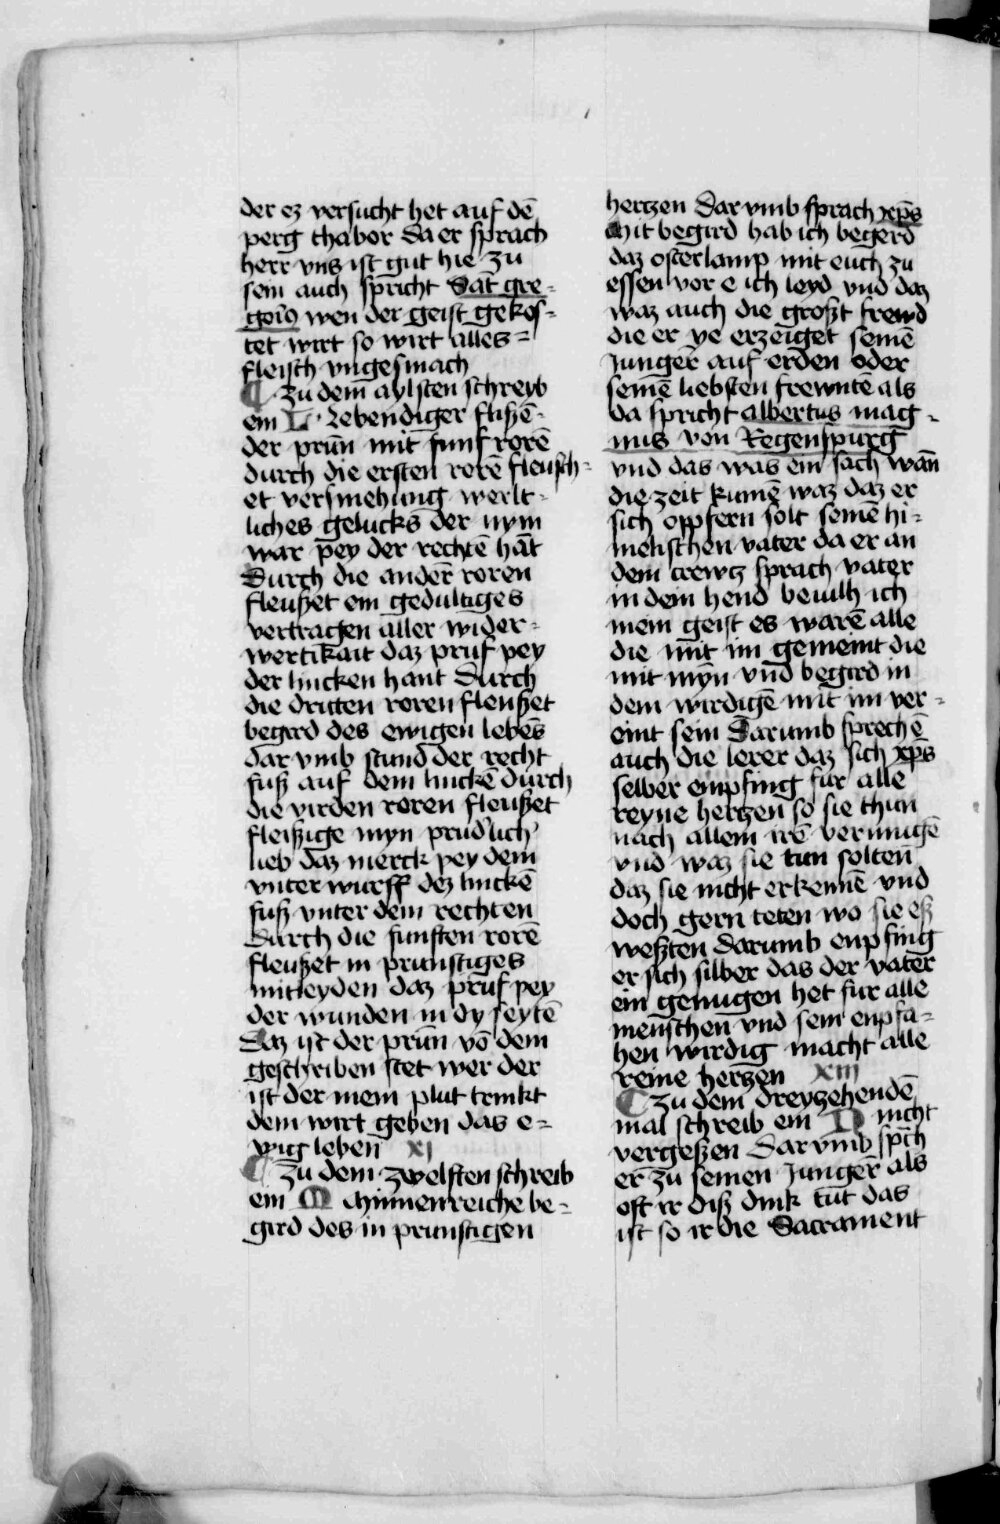 der ez versucht het auf dē
perg thabor Da er sprach
herr vns ist gut hie zu
sein auch spricht Sāt gre-
goiꝰ wen der geist gekos-
tet wirt so wirt alles=
fleisch vngesmach
¶ Zu dem aylsten schreyb
ein L· Lebendiger flißē-
der prūn mit funf rorē
durch die ersten rorē fleusch=
et versmehung werlt-
liches gelucks der nym
war pey der rechtē hāt
Durch die anderē roren
fleußet ein gedultiges
vertragen aller wider-
wertikait daz pruf pey
der lincken hant Durch
die dritten roren fleußet
begird des ewigen lebēs
dar vmb stund der recht
fuß auf dem linckē durch
die virden roren fleußet
fleißige myn prud'lich'
lieb daz merck pey dem
vnter wurff dez linckē
fuß vnter dem rechten
Durch die funften rorē
fleußet in prunstiges
mitleyden daz pruf pey
der wunden in dy seytē
Daz ist der prūn vō dem
geschriben stet wer der
ist der mein plut trinkt
dem wirt geben das e=
wig leben XI
¶ Zu dem zwelften schreib
ein M Minnenreiche be=
gird des in prunstigen
hertzen Dar vmb sprach xp̄s
Mit begird hab ich begerd
daz osterlamp mit euch zu
essen vor e ich leyd vnd daz
waz auch die großt frewd
die er ye erzeiget seinē
Junger auf erden oder
seinē liebsten frewntē als
da spricht albertus mag-
nus von Regenspurg
vnd das was ein sach wān
die zeit kumē waz daz er
sich oppfern solt seinē hi=
melischen vater da er an
dem crewtz sprach vater
in dein hend beuilh ich
mein geist es warē alle
die mit im gemeint die
mit myn vnd begird in
dem wirdigē mit im ver=
eint sein Darumb sprechē
auch die lerer daz sich xp̄s
selber empfing fur alle
reyne hertzen so sie thun
nach allem irē vermugē
vnd waz sie tun solten
daz sie nicht erkennē vnd
doch gern teten wo sie eß
weßten Darumb enpfing
er sich silber das der vater
ein genugen het fur alle
menschen vnd sein enpfa-
hen wirdig macht alle
reine hertzen XIII
¶ Zu dem dreytzehendē
mal schreib ein N nicht
vergeßen Dar vmb sp̄ch
er zu seinen Jungeꝛ als
oft ir diß dink tūt das
ist so ir die Sacrament